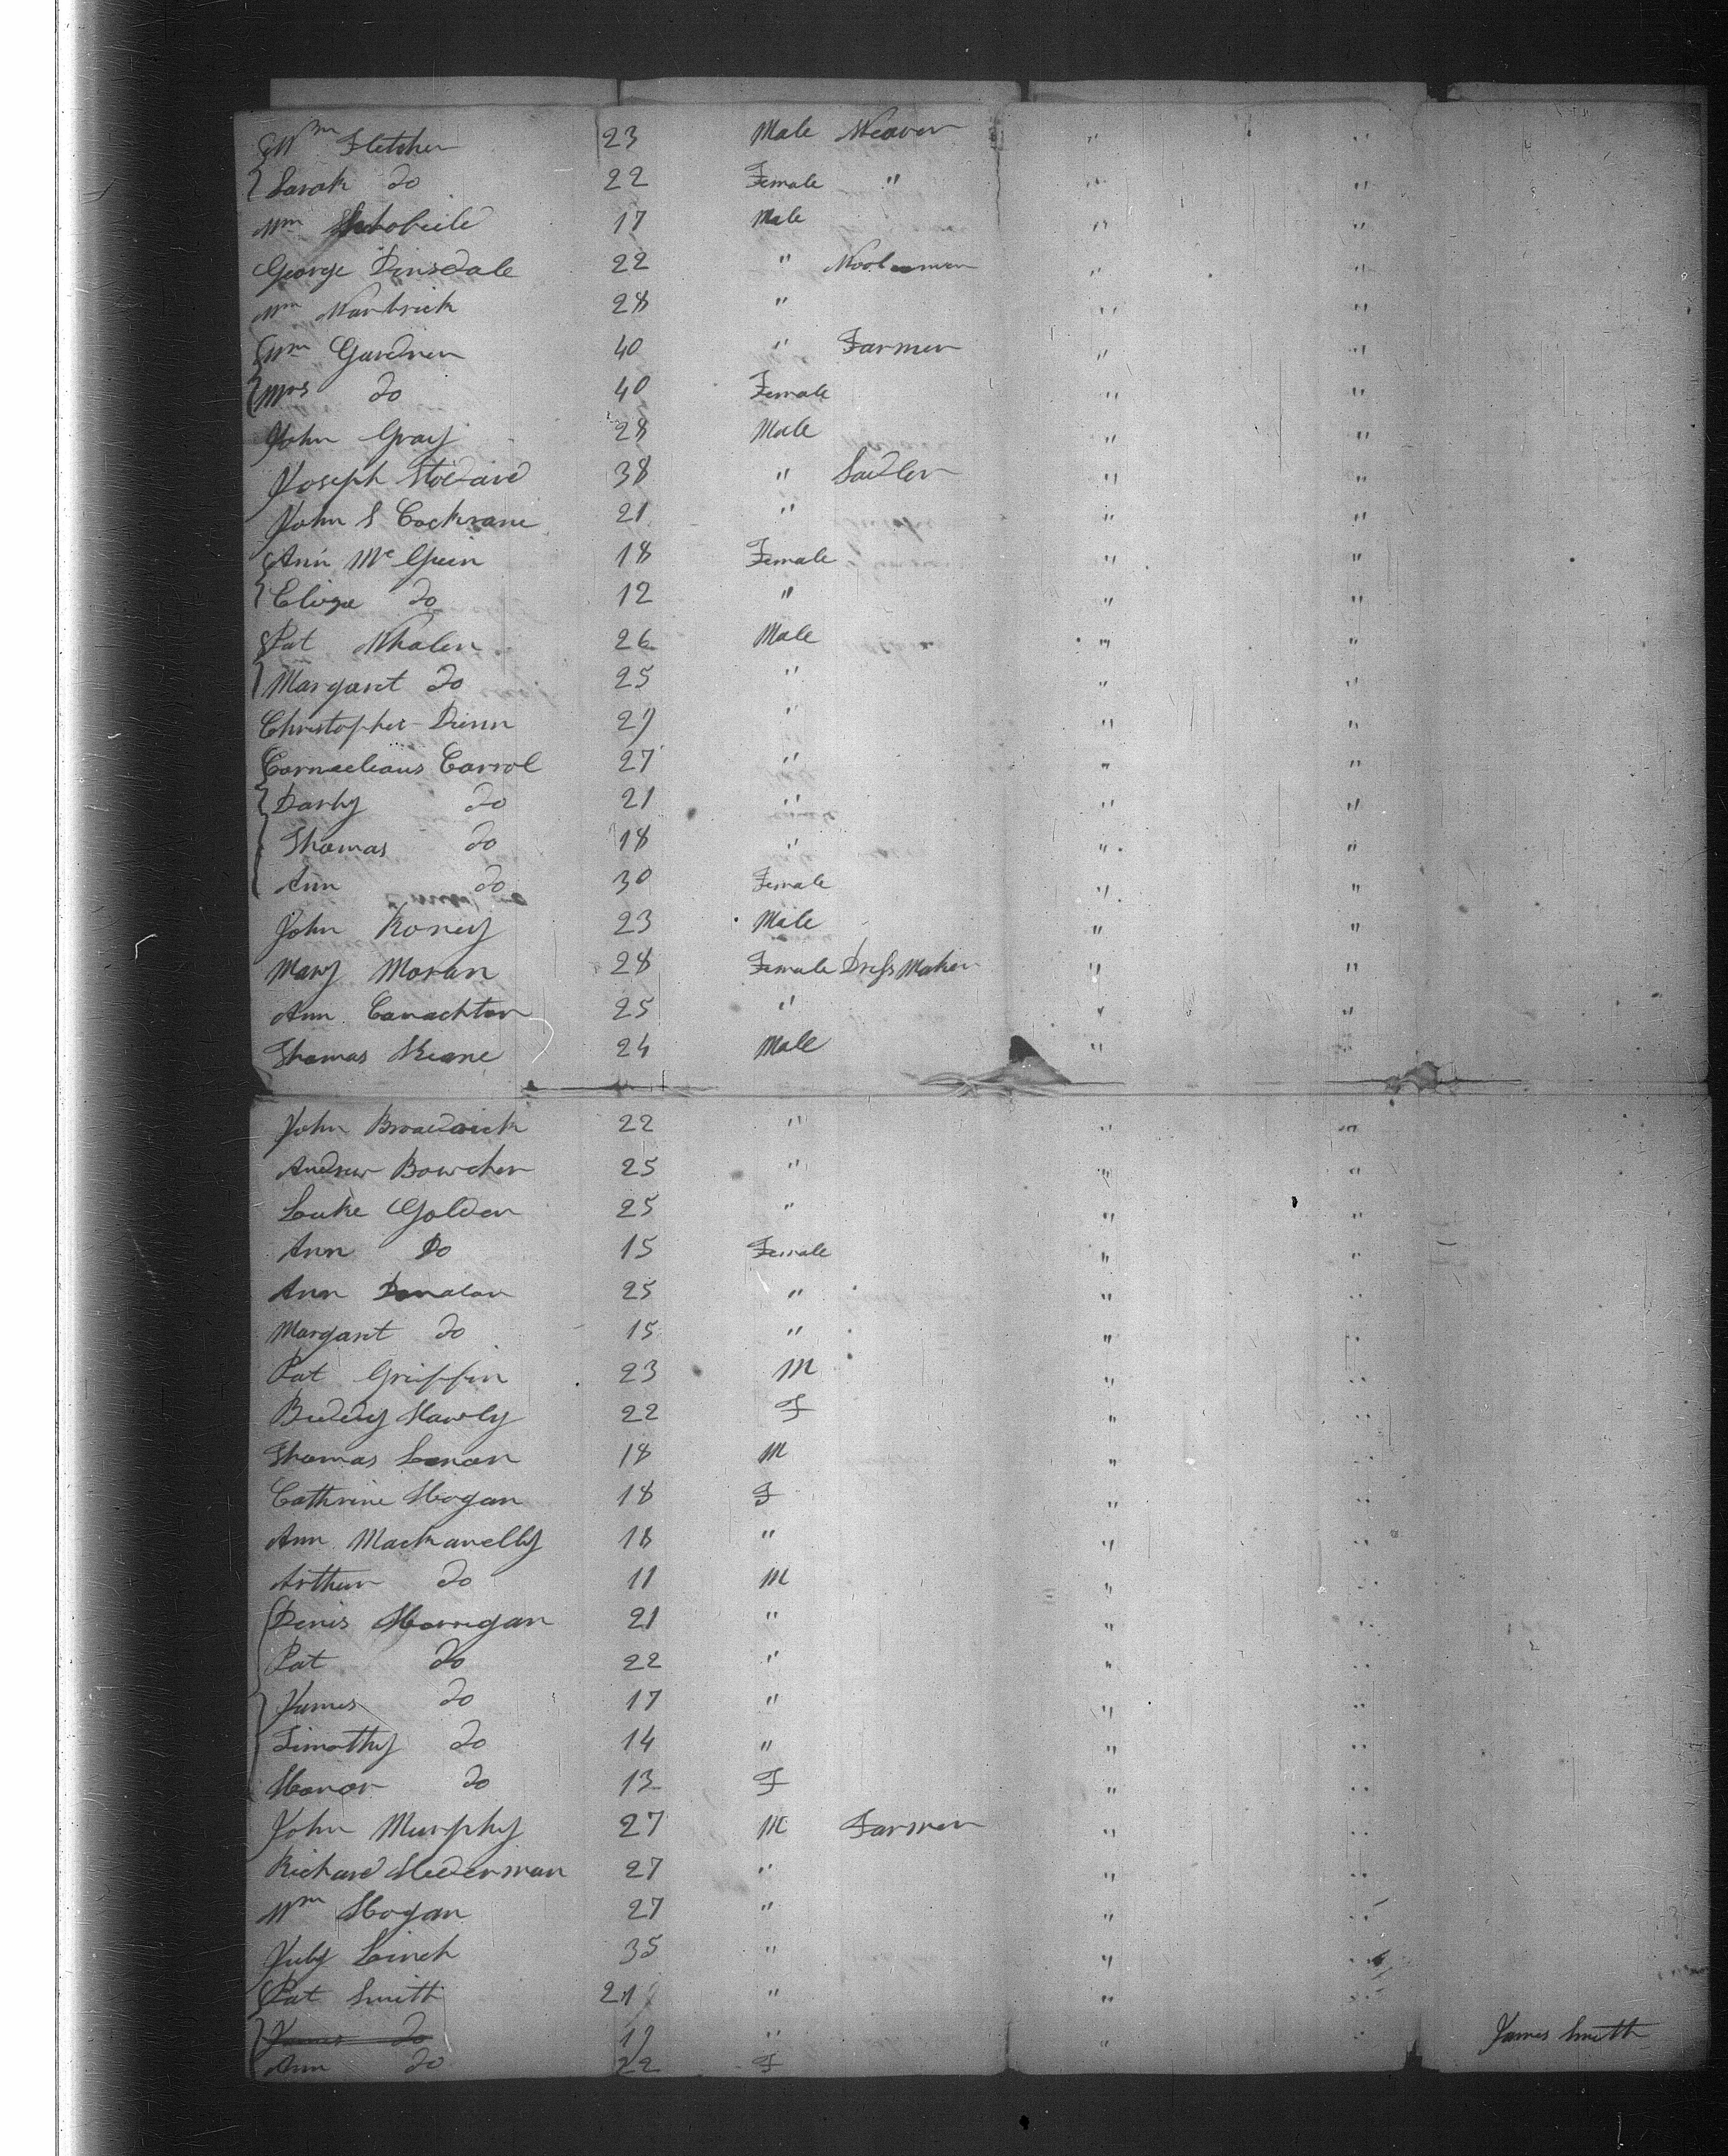 Wm Fletcher 23 Male Weaver " "
Sarah Do 22 Female " " "
Wm 17 Male " "
George Dinsdale 22 " Wool " "
Wm Warbrick 28 " " "
Wm Gardner 40 " Farmer " "
Mrs Do 40 Female " "
John Gray 28 Male " "
Joseph Stodard 38 " Sadler " "
John S Cockrane 21 " " "
Ann Mc Guin 18 Female " "
Eliza Do 12 " " "
Pat Whalen 26 Male " "
Margaret Do 25 " " "
Christopher Dunn 27 " " "
Carnaeleaus Carrol 27 " " "
Darby Do 21 " " "
Thomas Do 18 " " "
Ann Do 30 Female " "
John Roney 23 Male " "
Mary Moran 28 Female Dress Maker " "
Ann Canachton 25 " " "
Thomas Keane 24 Male " "
John Broadwick 22 " " "
Andrew Bowcher 25 " " "
Luke Golden 25 " " "
Ann Do 15 Female " "
Ann Donalan 25 " " "
Margaret Do 15 " " "
Pat Griffin 23 M " "
Biddy Hawly 22 F " "
Thomas Lenon 18 M " "
Cathrine Hogan 18 F " "
Ann Mackanelly 18 " " "
Arthur Do 11 M " "
Denis Horrigan 21 " " "
Pat Do 22 " " "
James Do 17 " " "
Timothy Do 14 " " "
Honor Do 13 F " "
John Murphy 27 M Farmer " "
Richard Hederman 27 " " "
Wm Hogan 27 " " "
July Linch 35 " " "
Pat Smith 21 " " "
James Do 19 " " " James Smith
Ann Do 22 F